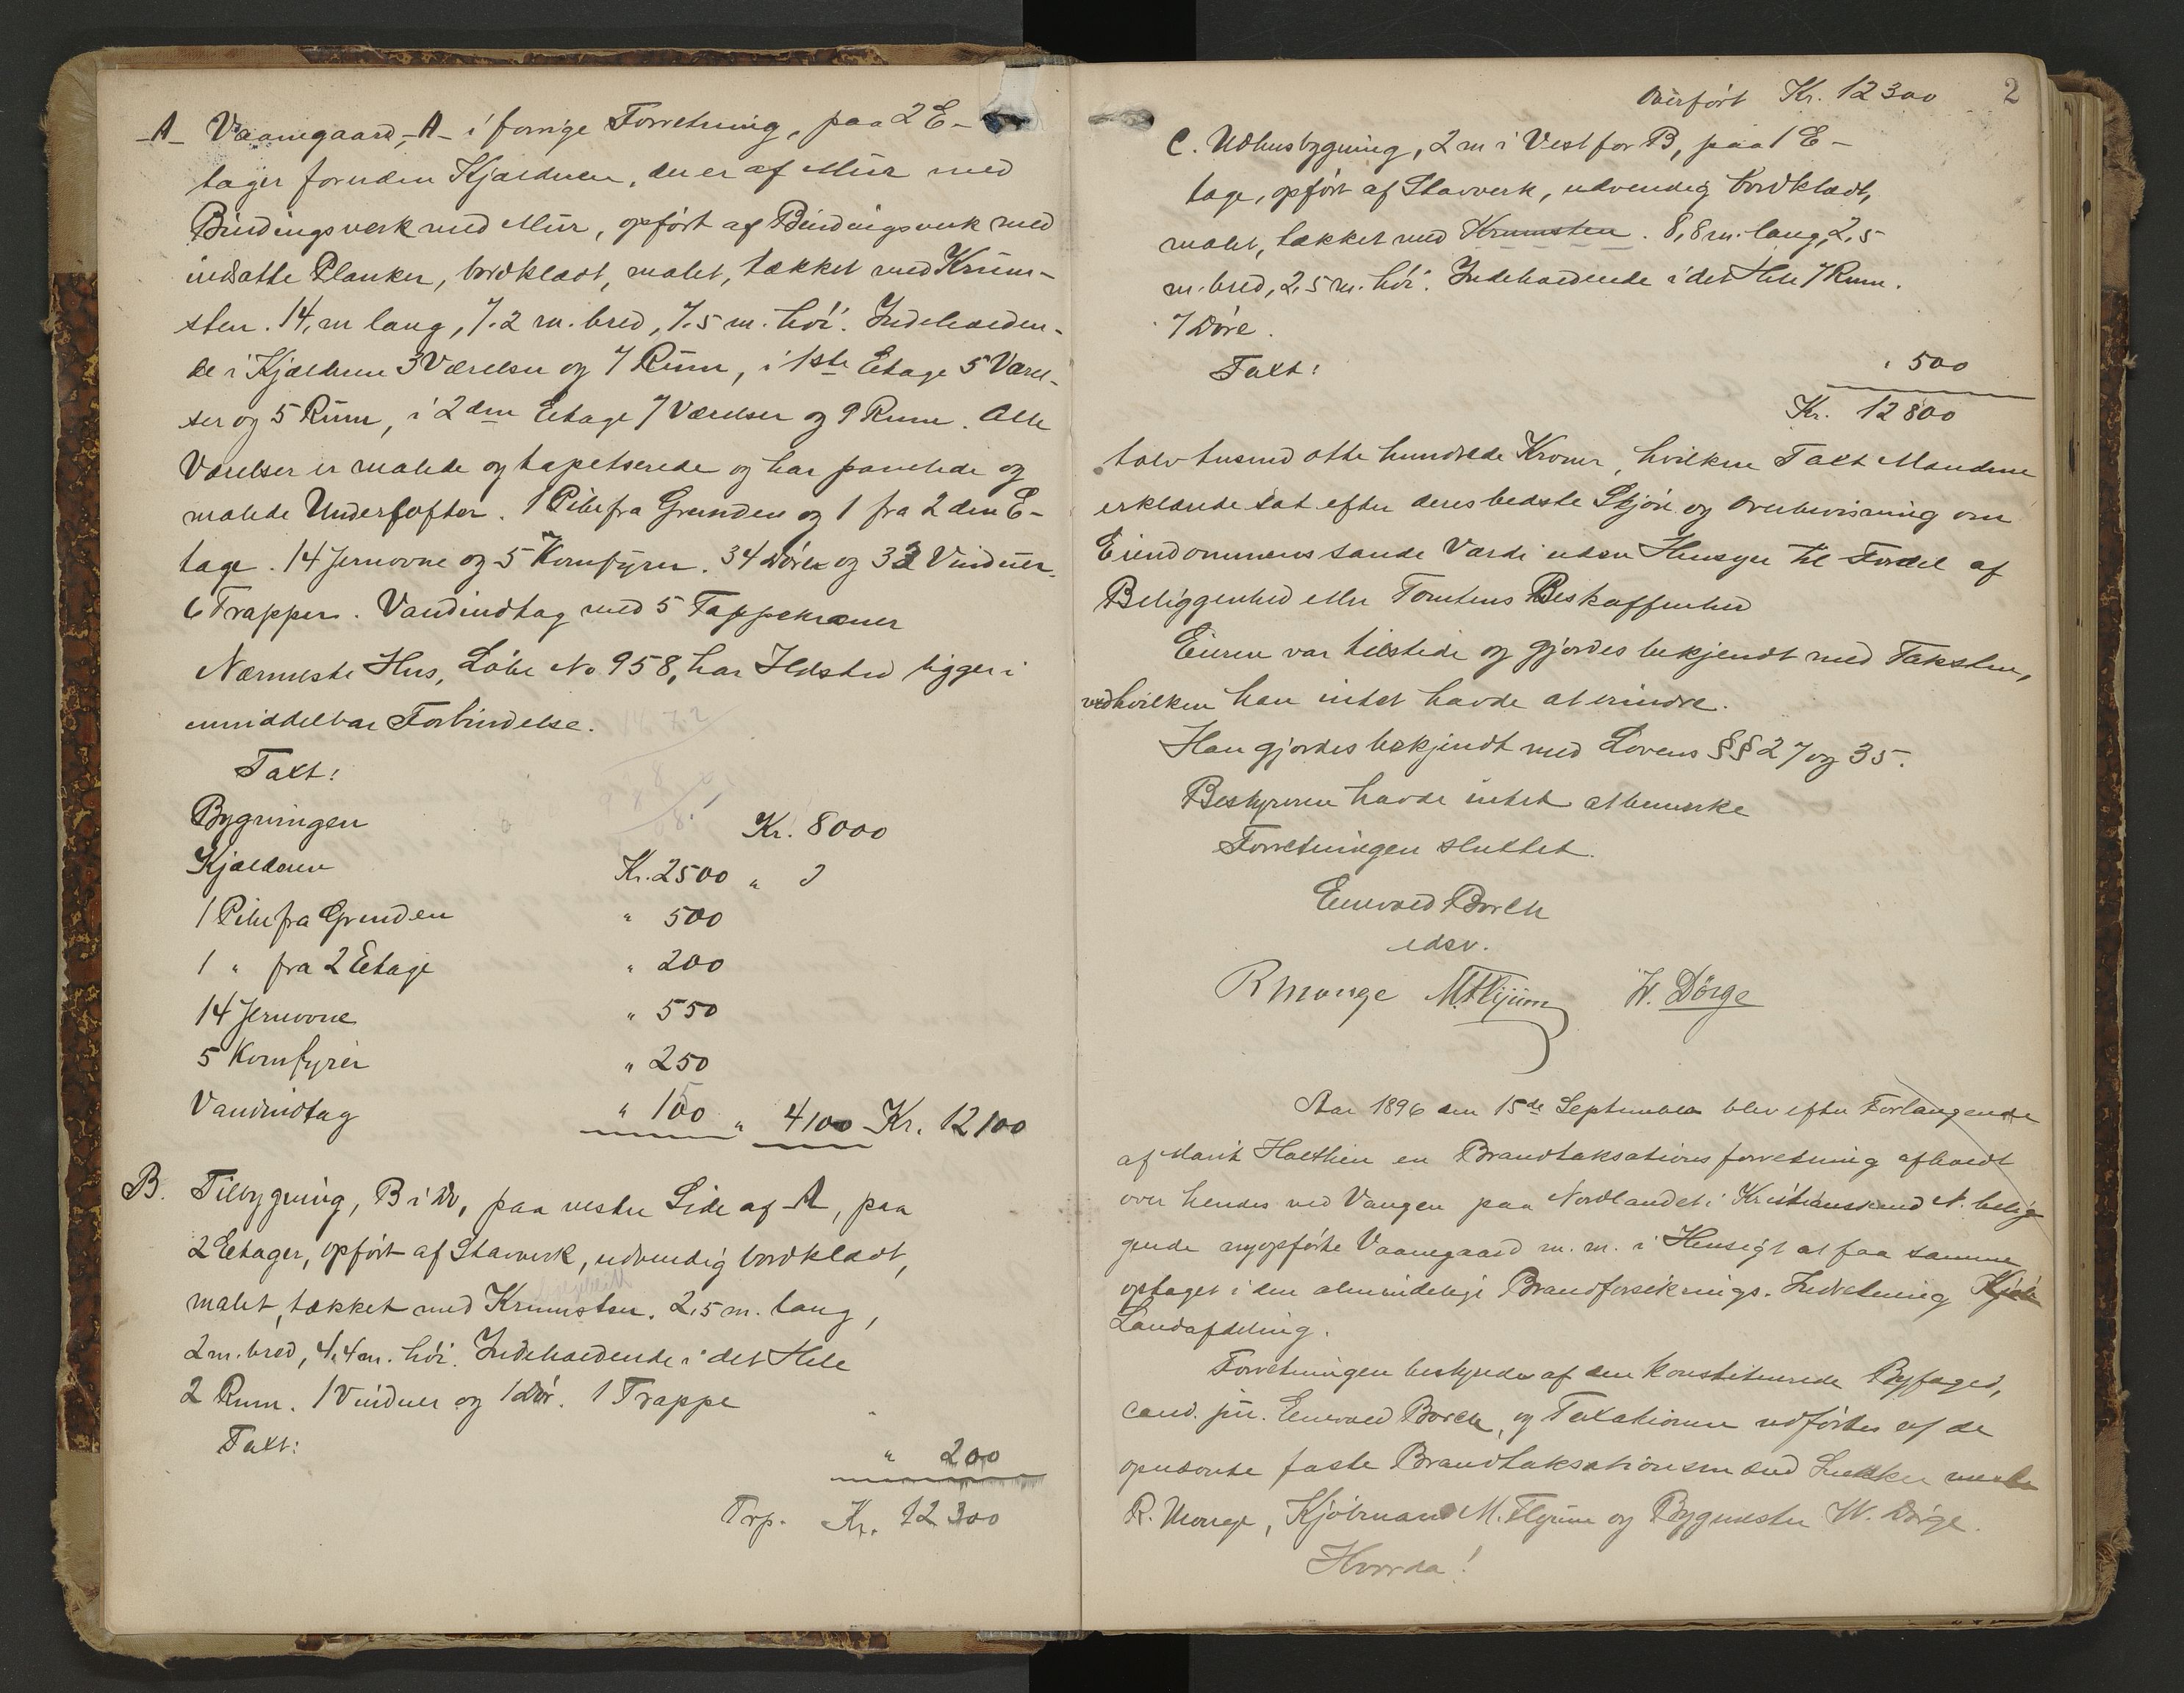 -A- Vaanegaard, -A- i forrige Forretning, paa 2 E-
tager foruden Kjælderen, der er af Mur med
Bindingsverk med Mur, opført af Bindingsverk med
indsatte Planker, bordklædt, malet, tækket med Krum-
sten. 14, m lang, 7.2 m. bred, 7.5 m. høi. Indeholden-
de i Kjælderen 3 Værelser og 7 Rum, i 1ste Etage 5 Værel-
ser og 5 Rum, i 2den Etage 7 Værelser og 9 Rum. Alle
Værelser er malede og tapetserede og har panelede og
malede Underlofter. 1 Pibe fra Grunden og 1 fra 2den E-
tage. 14 Jernovne og 5 Komfyrer. 34 Døre og 33 Vinduer.
6 Trapper. Vandindtag med 5 Tappekraner
Nærmeste Hus, Løbe No 958, har Ildsted ligger i
umiddelbar Forbindelse.
Taxt:
Bygningen Kr. 8000
Kjælderen Kr. 2500 "
1 Pibe fra Grunden " 500
1 " fra 2 Etage " 200
14 Jernovne " 550
5 Komfyrer " 250
Vandindtag " 100 " 4100 Kr. 12100
B. Tilbygning, B i Do, paa vestre Side af A, paa
2 Etager, opført af Stavverk, udvendig bordklædt,
malet, tækket med Krumsten. 2,5 m. lang,
2 m. bred, 4.4 m. høi. Indeholdende i det Hele
2 Rum. 1 Vinduer og 1 Dør. 1 Trappe
Taxt: " 200
Trp. Kr. 12300
2
Overført Kr. 12300
C. Udhusbygning, 2 m i Vest for B, paa 1 E-
tage, opført af Stavverk, udvendig bordklædt,
malet, tækket med Krumsten. 8,8 m. lang, 2,5
m. bred, 2,5 m. høi. Indeholdende i det Hele 7 Rum.
7 Døre.
Taxt: " 500
Kr. 12800
tolv tusend otte hundrede Kroner, hvilken Taxt Mændene
erklærede sat efter deres bedste Skjøn og Overbevisning om
Eiendommens sande Værdi uden Hensyn til Fordel af
Beliggenhed eller Tomtens Beskaffenhed
Eieren var tilstede og gjordes bekjendt med Taksten,
ved hvilken han intet havde at erindre.
Han gjordes bekjendt med Lovens §§ 27 og 35.
Bestyreren havde intet at bemerke
Forretningen sluttet.
Enevold Borch
edsv.
R Monge M. Flijum W. Dörge
Aar 1896 den 15de September blev efter Forlangende
af Marit Holthen en Brandtaksationsforretning afholdt
over hendes ved Vaagen paa Nordlandet i Kristianssund N. belig
gende nyopførte Vaanegaard m. m. i Hensigt at faa samme
optaget i den almindelige Brandforsikrings-Indretning
Landafdeling.
Forretningen bestyredes af den konstituerede Byfoged,
cand. jur. Enevold Borch, og Taxationen udførtes af de
opnævnte faste Brandtaksationsmænd Snekker
R. Monge, Kjøbmand M. Flijum og Bygmester W. Dørge.
Hvorda!